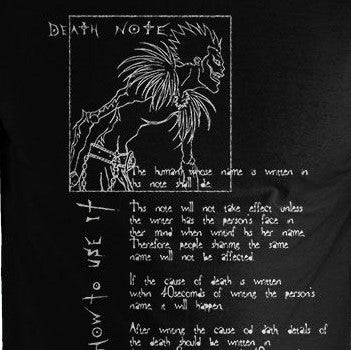 DEATH NOTE
The human whose name is written in
his note shall die.
How to USE IT
This note will not take effect unless
the writer has the person's face in
ther mind when writinf hs her name.
Therefore, people sharimg the same
name will not be affected.
If the cause of death is written
within 40seconds of writeing the person's
name, it will happen.
After writeing the cause od dath details of
the death should be written in